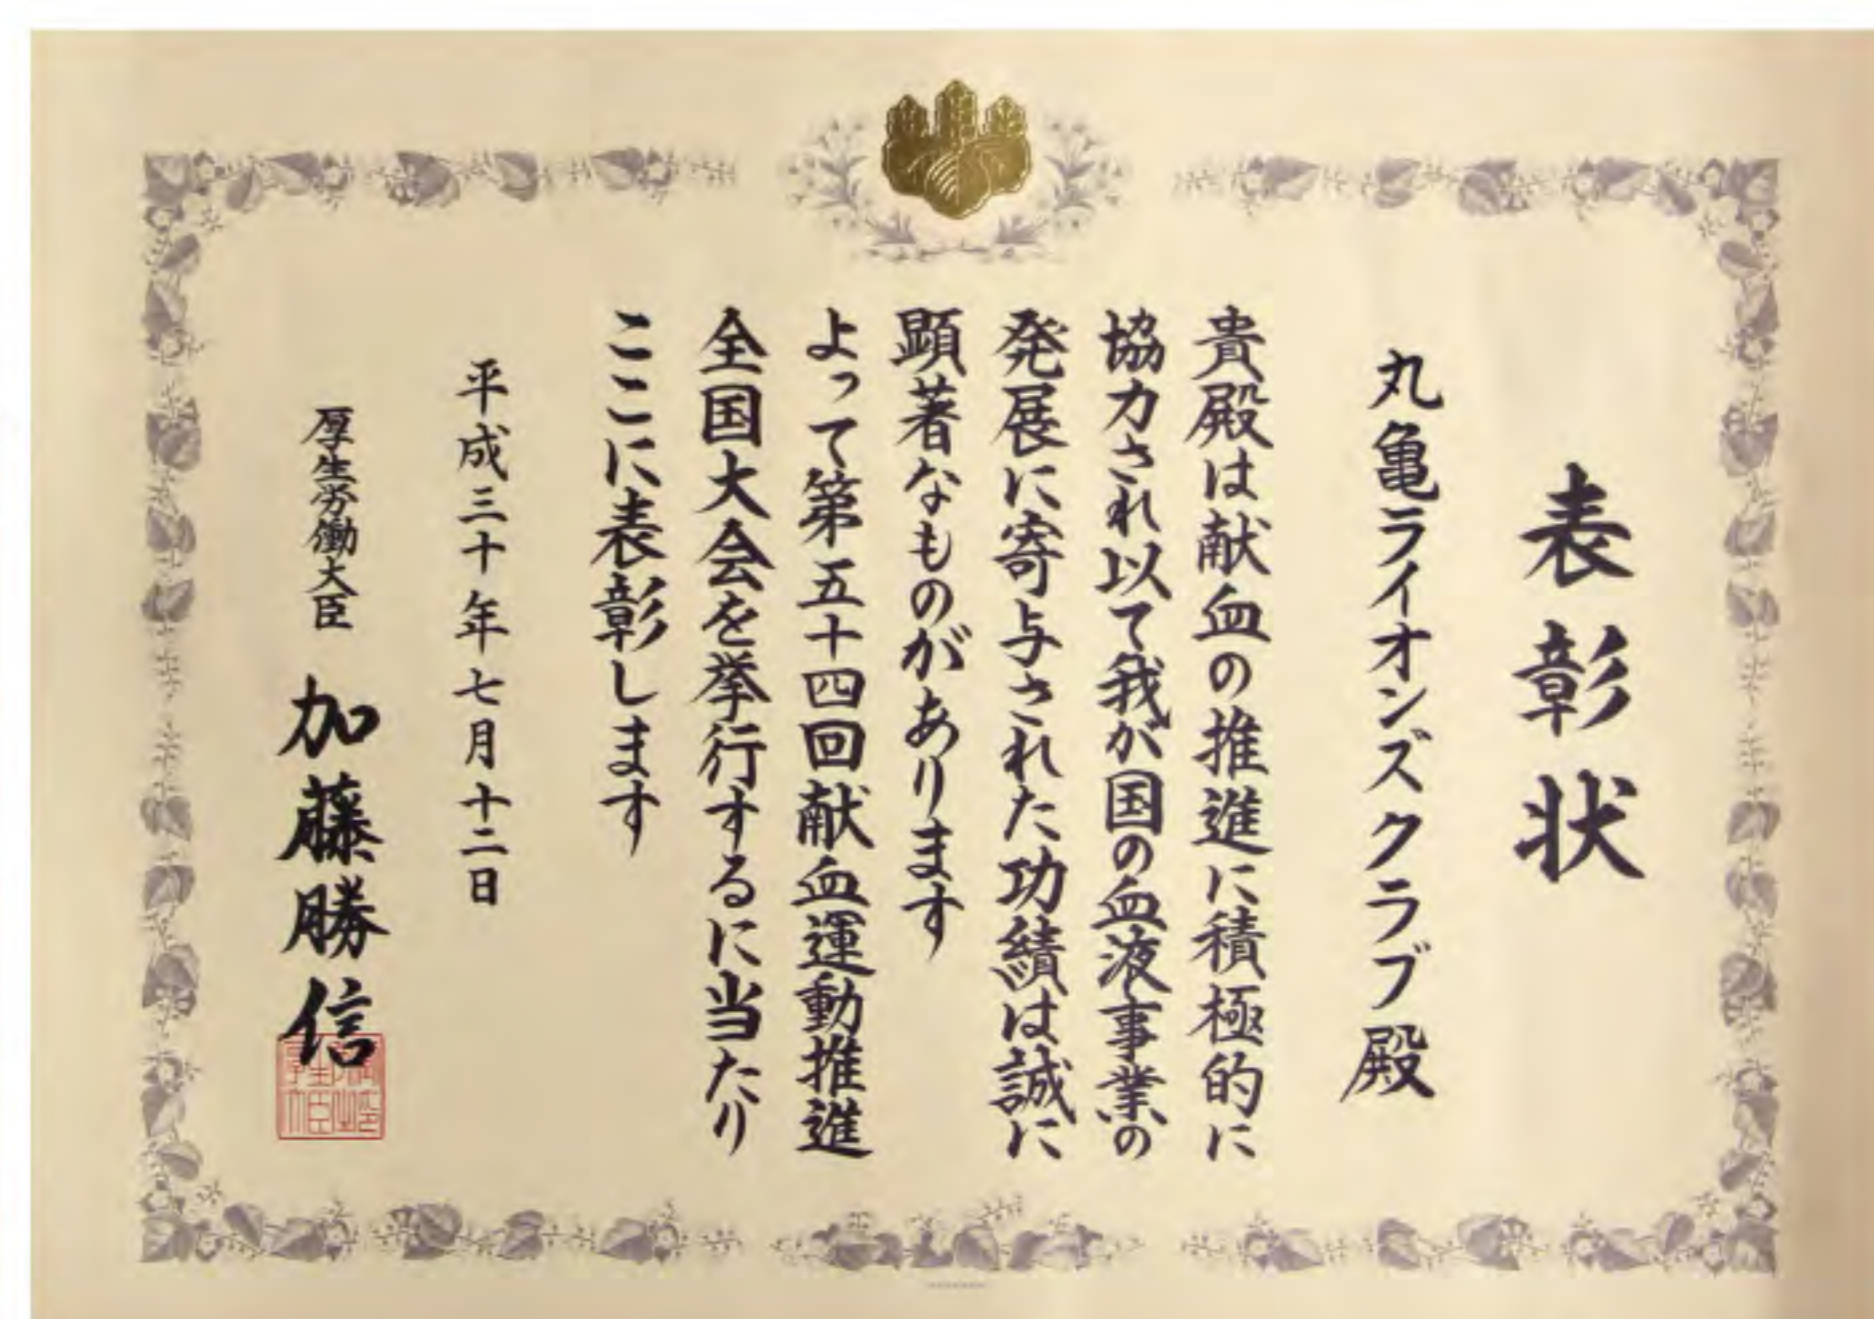 表彰状
丸亀ライオンズクラブ殿
貴殿は献血の推進に積極的に
協力され以て我が国の血液事業の
発展に寄与された功績は誠に
顕著なものがあります
よって第五十四回献血運動推進
全国大会を挙行するに当たり
ここに表彰します
平成三十年七月十二日
厚生労働大臣 加藤勝信